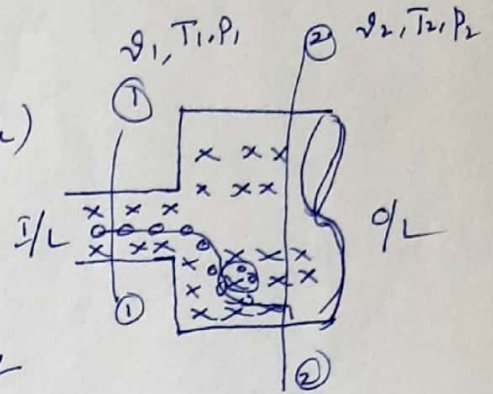 ϑ₁, T₁, P₁
② ϑ₂, T₂, P₂
①
I/L
O/L
①
②